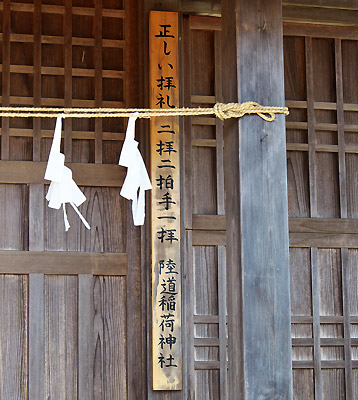 正しい拝礼 二拝二拍手一拝 陸道稲荷神社